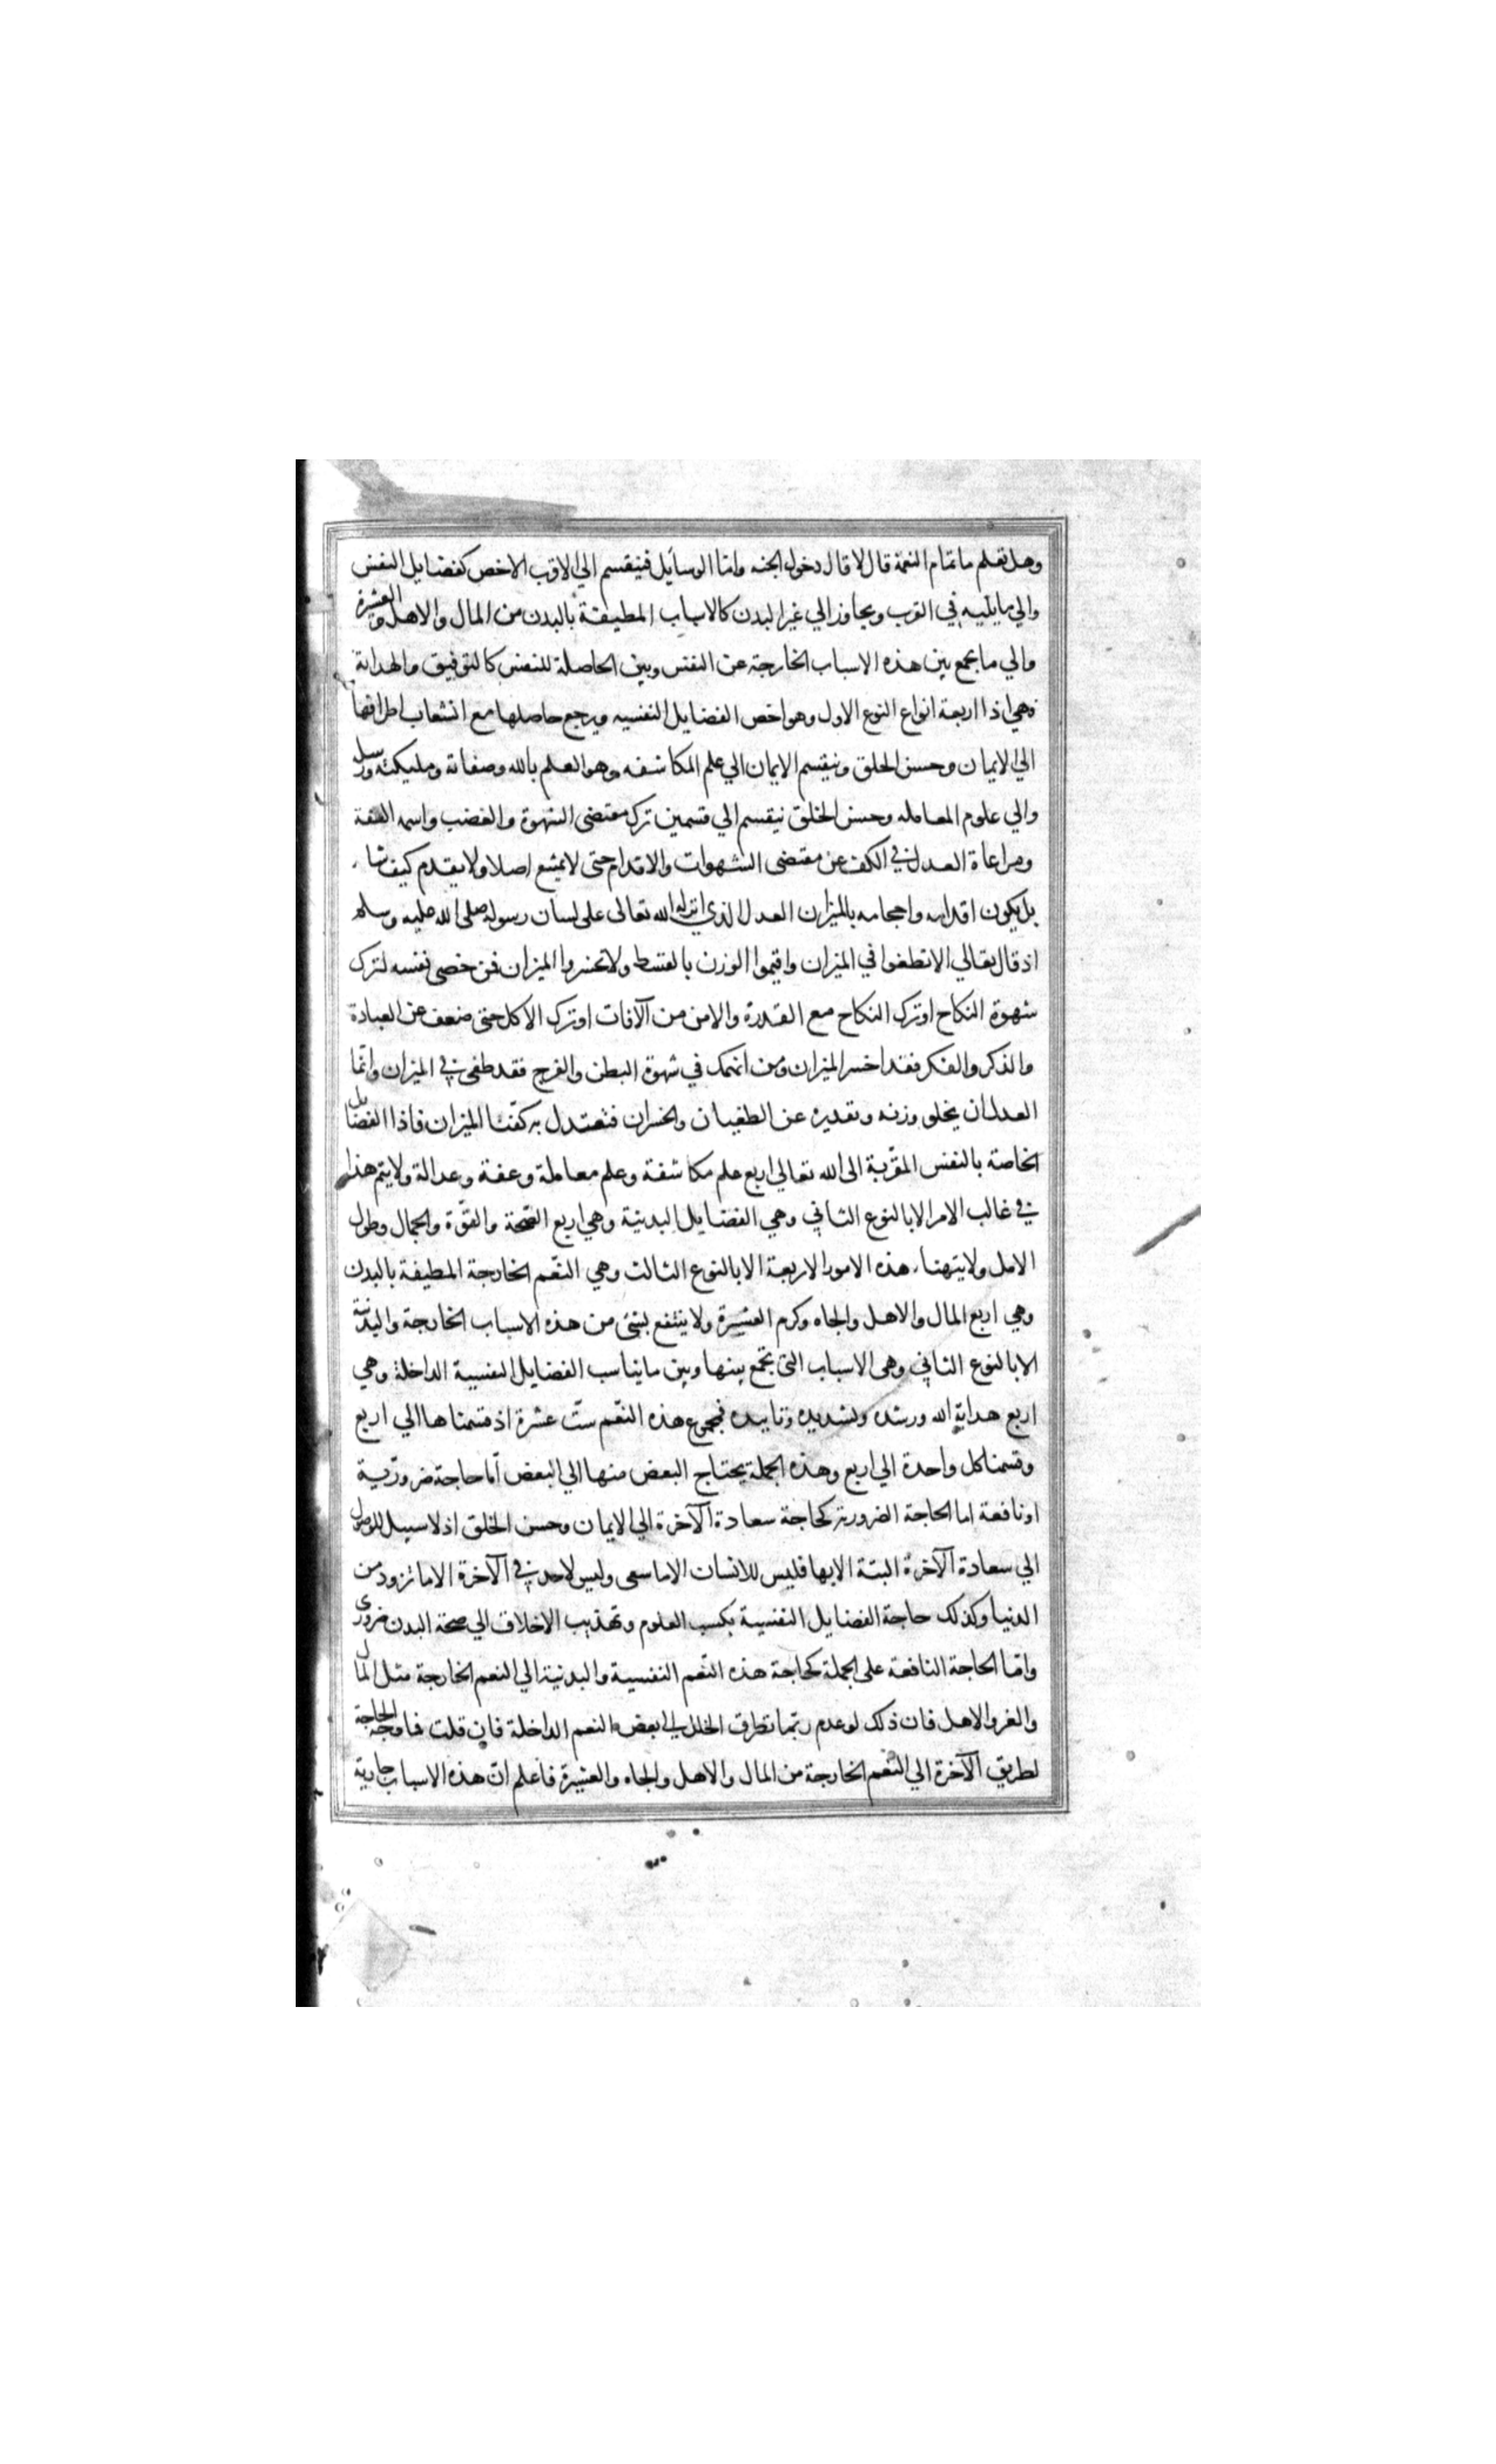 وهل تعلم ما تمام النعمة قال لا قال دخول الجنه واما الوسايل فينقسم الي الاقرب الاخص كفضايل النفس
والي ما يليه في القرب ويجاوز الي غير البدن كالاسباب المطيفة بالبدن من المال والاهل والعشيرة
والي ما يجمع بين هذه الاسباب الخارجة عن النفس وبين الحاصلة للنفس كالتوفيق والهداية
فهي اذا اربعة انواع النوع الاول وهو اخص الفضايل النفسيه ويرجع حاصلها مع انشعاب اطرافها
الي الايمان وحسن الخلق وينقسم الايمان الي علم المكاشفه وهو العلم بالله وصفاته ومليكته ورسل
والي علوم المعامله وحسن الخلق ينقسم الي قسمين ترك مقتضى الشهوة والغضب واسمه العفة
ومراعاة العدل في الكف عن مقتضى الشهوات والاقدام حتى لا يمتنع اصلا ولا يقدم كيف شاء
بل يكون اقدامه واحجامه بالميزان العدل الذي انزله الله تعالى على لسان رسوله صلى الله عليه وسلم
اذ قال تعالي الا تطغوا في الميزان واقيموا الوزن بالقسط ولا تخسروا الميزان فمن خصى نفسه لترك
شهوة النكاح او ترك النكاح مع القدرة والامن من الآفات او ترك الاكل حتى ضعف عن العبادة
والذكر والفكر فقد اخسر الميزان ومن انهمك في شهوة البطن والفرج فقد طغى في الميزان وانما
العدل ان يخلو وزنه وتقديره عن الطغيان والخسران فتعتدل به كفتا الميزان فاذا الفضايل
الخاصة بالنفس المقربة الى الله تعالي اربع علم مكاشفة وعلم معاملة وعفة وعدالة ولا يتم هذا
في غالب الامر الا بالنوع الثاني وهي الفضايل البدنية وهي اربع الصحة والقوة والجمال وطول
الامل ولا يتهناء هذه الامور الاربعة الا بالنوع الثالث وهي النعم الخارجة المطيفة بالبدن
وهي اربع المال والاهل والجاه وكرم العشيرة ولا ينتفع بشئ من هذه الاسباب الخارجة والبدنية
الا بالنوع الثاني وهى الاسباب التى تجمع بينها وبين ما يناسب الفضايل النفسية الداخلة وهي
اربع هداية الله ورشده وتشديده وتاييده فجموع هذه النعم ست عشرة اذ قسمناها الي اربع
وقسمنا كل واحدة الي اربع وهذه الجملة يحتاج البعض منها الي البعض اما حاجة ضرورية
او نافعة اما الحاجة الضرورية كحاجة سعادة الآخرة الي الايمان وحسن الخلق اذ لا سبيل للوصول
الي سعادة الآخرة البتة الا بها فليس للانسان الا ما سعى وليس لاحد في الآخرة الا ما تزود من
الدنيا وكذلك حاجة الفضايل النفسية بكسب العلوم وتهذيب الاخلاق الي صحة البدن ضرورى
واما الحاجة النافعة على الجملة كحاجة هذه النعم النفسية والبدنية الي النعم الخارجة مثل المال
والعز والاهل فان ذلك لو عدم ربما تطرق الخلل الي بعض النعم الداخلة فان قلت فما وجه الحاجة
لطريق الآخرة الي النعم الخارجة من المال والاهل والجاه والعشيرة فاعلم ان هذه الاسباب جارية